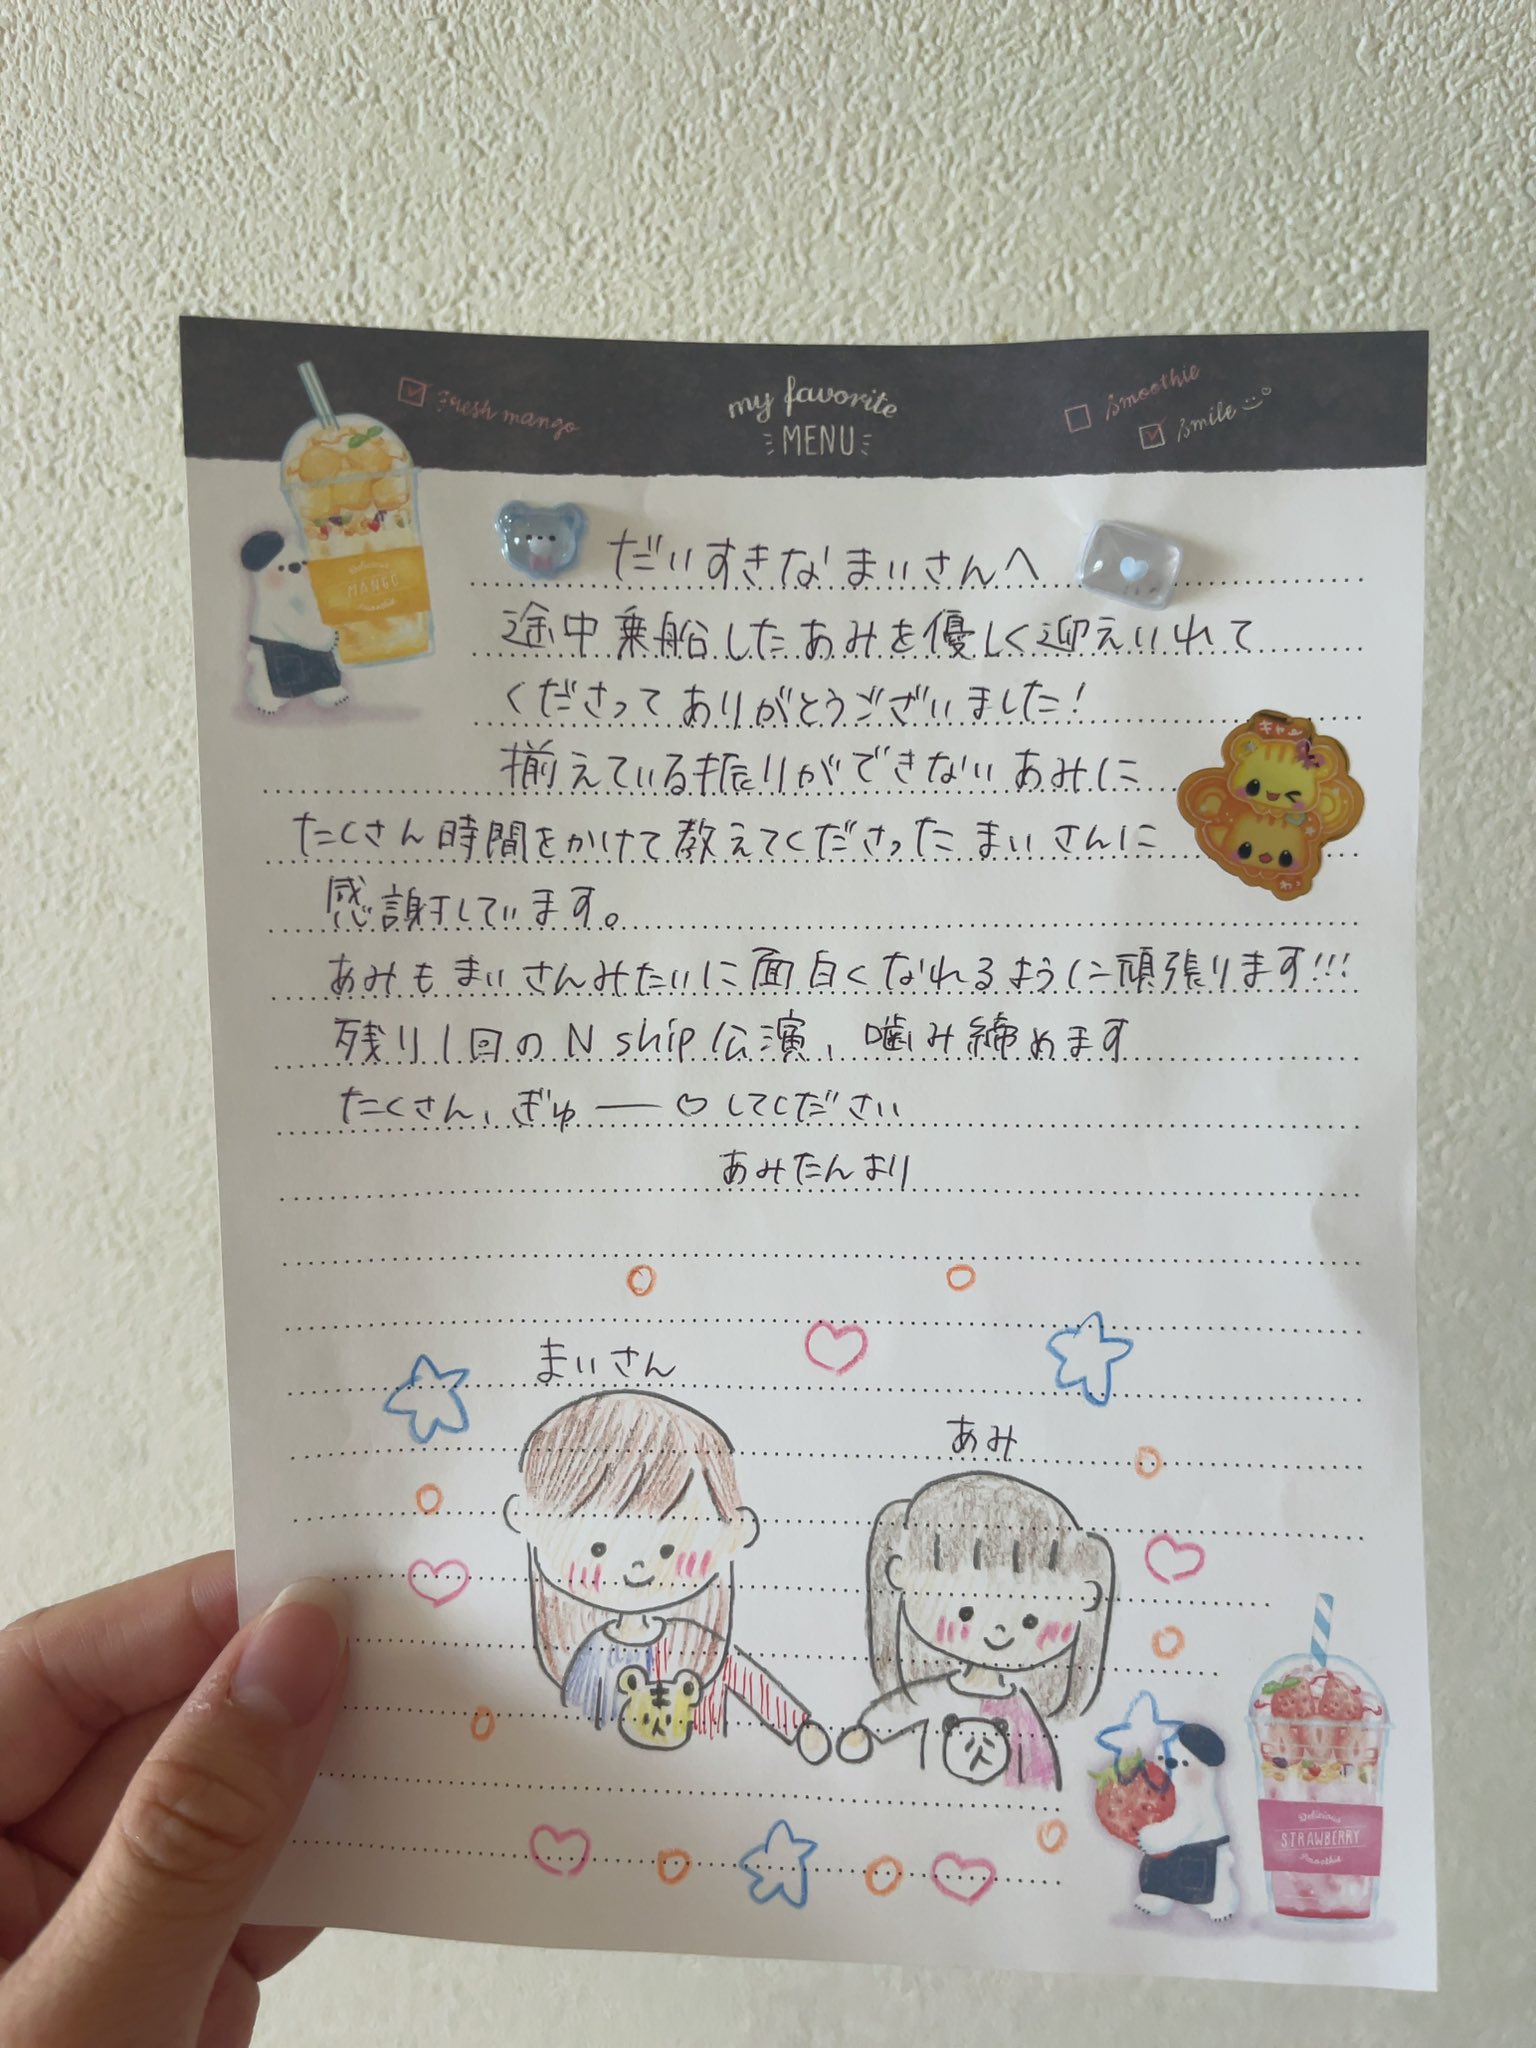 my favorite
MENU
Fresh mango
Smoothie
Smile
Delicious
MANGO
Smoothie
だいすきなまいさんへ
途中乗船したあみを優しく迎えいれて
くださってありがとうございました!
揃えている振りができないあみに
キャッ
たくさん時間をかけて教えてくださったまいさんに
わっ
感謝しています。
あみもまいさんみたいに面白くなれるように頑張ります!!!
残り1回のN ship公演、噛み締めます
たくさん、ぎゅー♡してください
あみたんより
まいさん
あみ
Delicious
STRAWBERRY
Smoothie